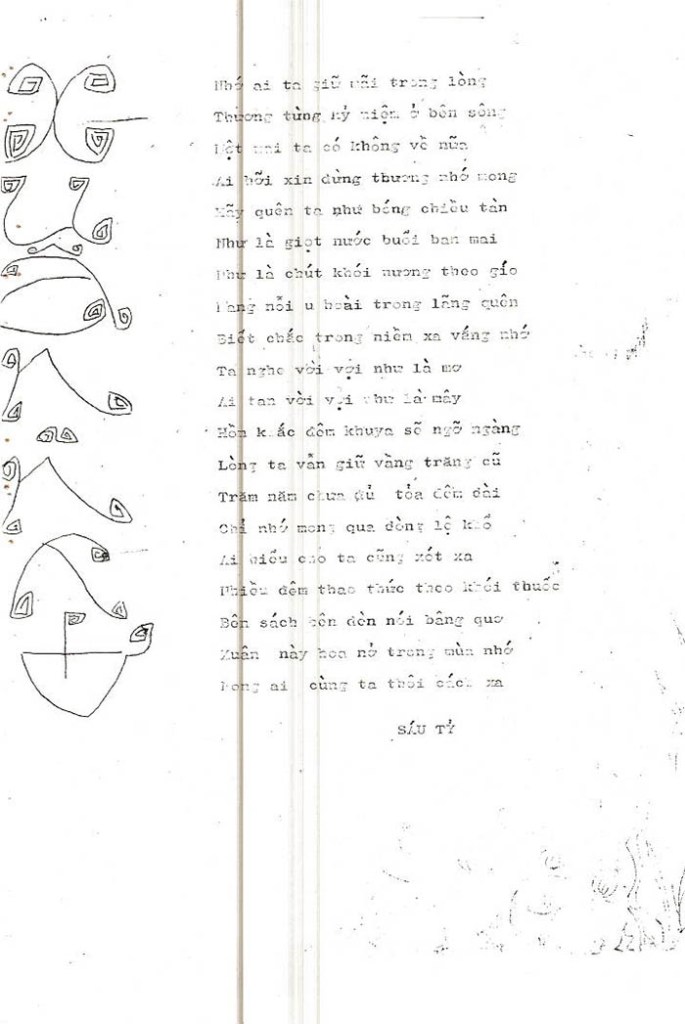 Nhớ ai ta giữ mãi trong lòng
Thương từng kỷ niệm ở bên sông
Một mai ta có không về nữa
Ai hỡi xin đừng thương nhớ mong
Hãy quên ta như bóng chiều tàn
Như là giọt nước buổi ban mai
Như là chút khói nương theo gío
Mang nỗi u hoài trong lãng quên
Biết chắc trong niềm xa vắng nhớ
Ta nghe vời vợi như là mơ
Ai tan vời vợi như là mây
Hồn khắc đêm khuya sẽ ngỡ ngàng
Lòng ta vẫn giữ vàng trăng cũ
Trăm năm chưa đủ tỏa đêm dài
Chỉ nhớ mong qua dòng lệ khổ
Ai hiểu cho ta cũng xót xa
Nhiều đêm thao thức theo khói thuốc
Bên sách bên đèn nói bâng quơ
Xuân này hoa nở trong mùa nhớ
Mong ai cùng ta thôi cách xa
SÁU TỶ